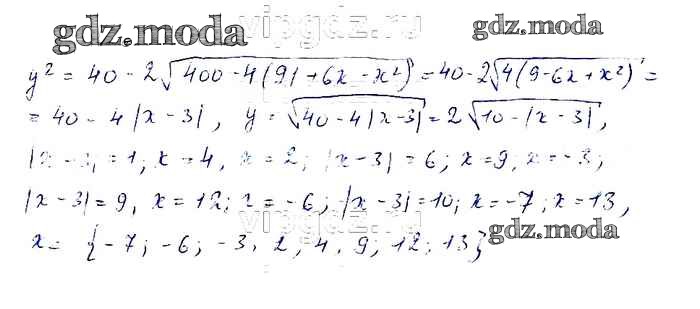 gdz.moda
gdz.moda
y² = 40 - 2√(400 - 4(91 + 6x - x²)) = 40 - 2√(4(9 - 6x + x²)) =
= 40 - 4|x - 3|, y = √(40 - 4|x - 3|) = 2√(10 - |x - 3|),
|x - 3| = 1; x = 4, x = 2; |x - 3| = 6; x = 9, x = -3;
|x - 3| = 9, x = 12; x = -6; |x - 3| = 10; x = -7; x = 13,
x = {-7; -6; -3, 2, 4, 9; 12; 13}
gdz.moda
vipgdz.ru
vipgdz.ru